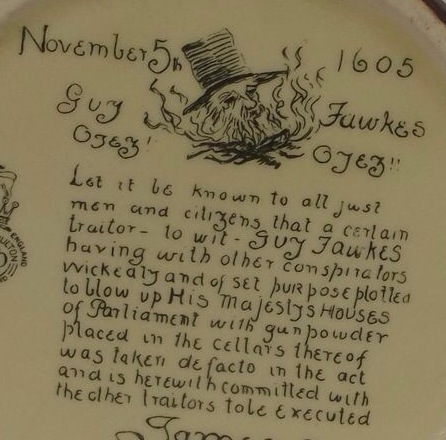 November 5th 1605
Guy Fawkes
OJEZ! OJEZ!!
Let it be known to all just
men and citizens that a certain
traitor - to wit - GUY FAWKES
having with other conspirators
wickedly and of set purpose plotted
to blow up His Majestys Houses
of Parliament with gunpowder
placed in the cellars thereof
was taken de facto in the act
and is herewith committed with
the other traitors to be Executed
ENGLAND